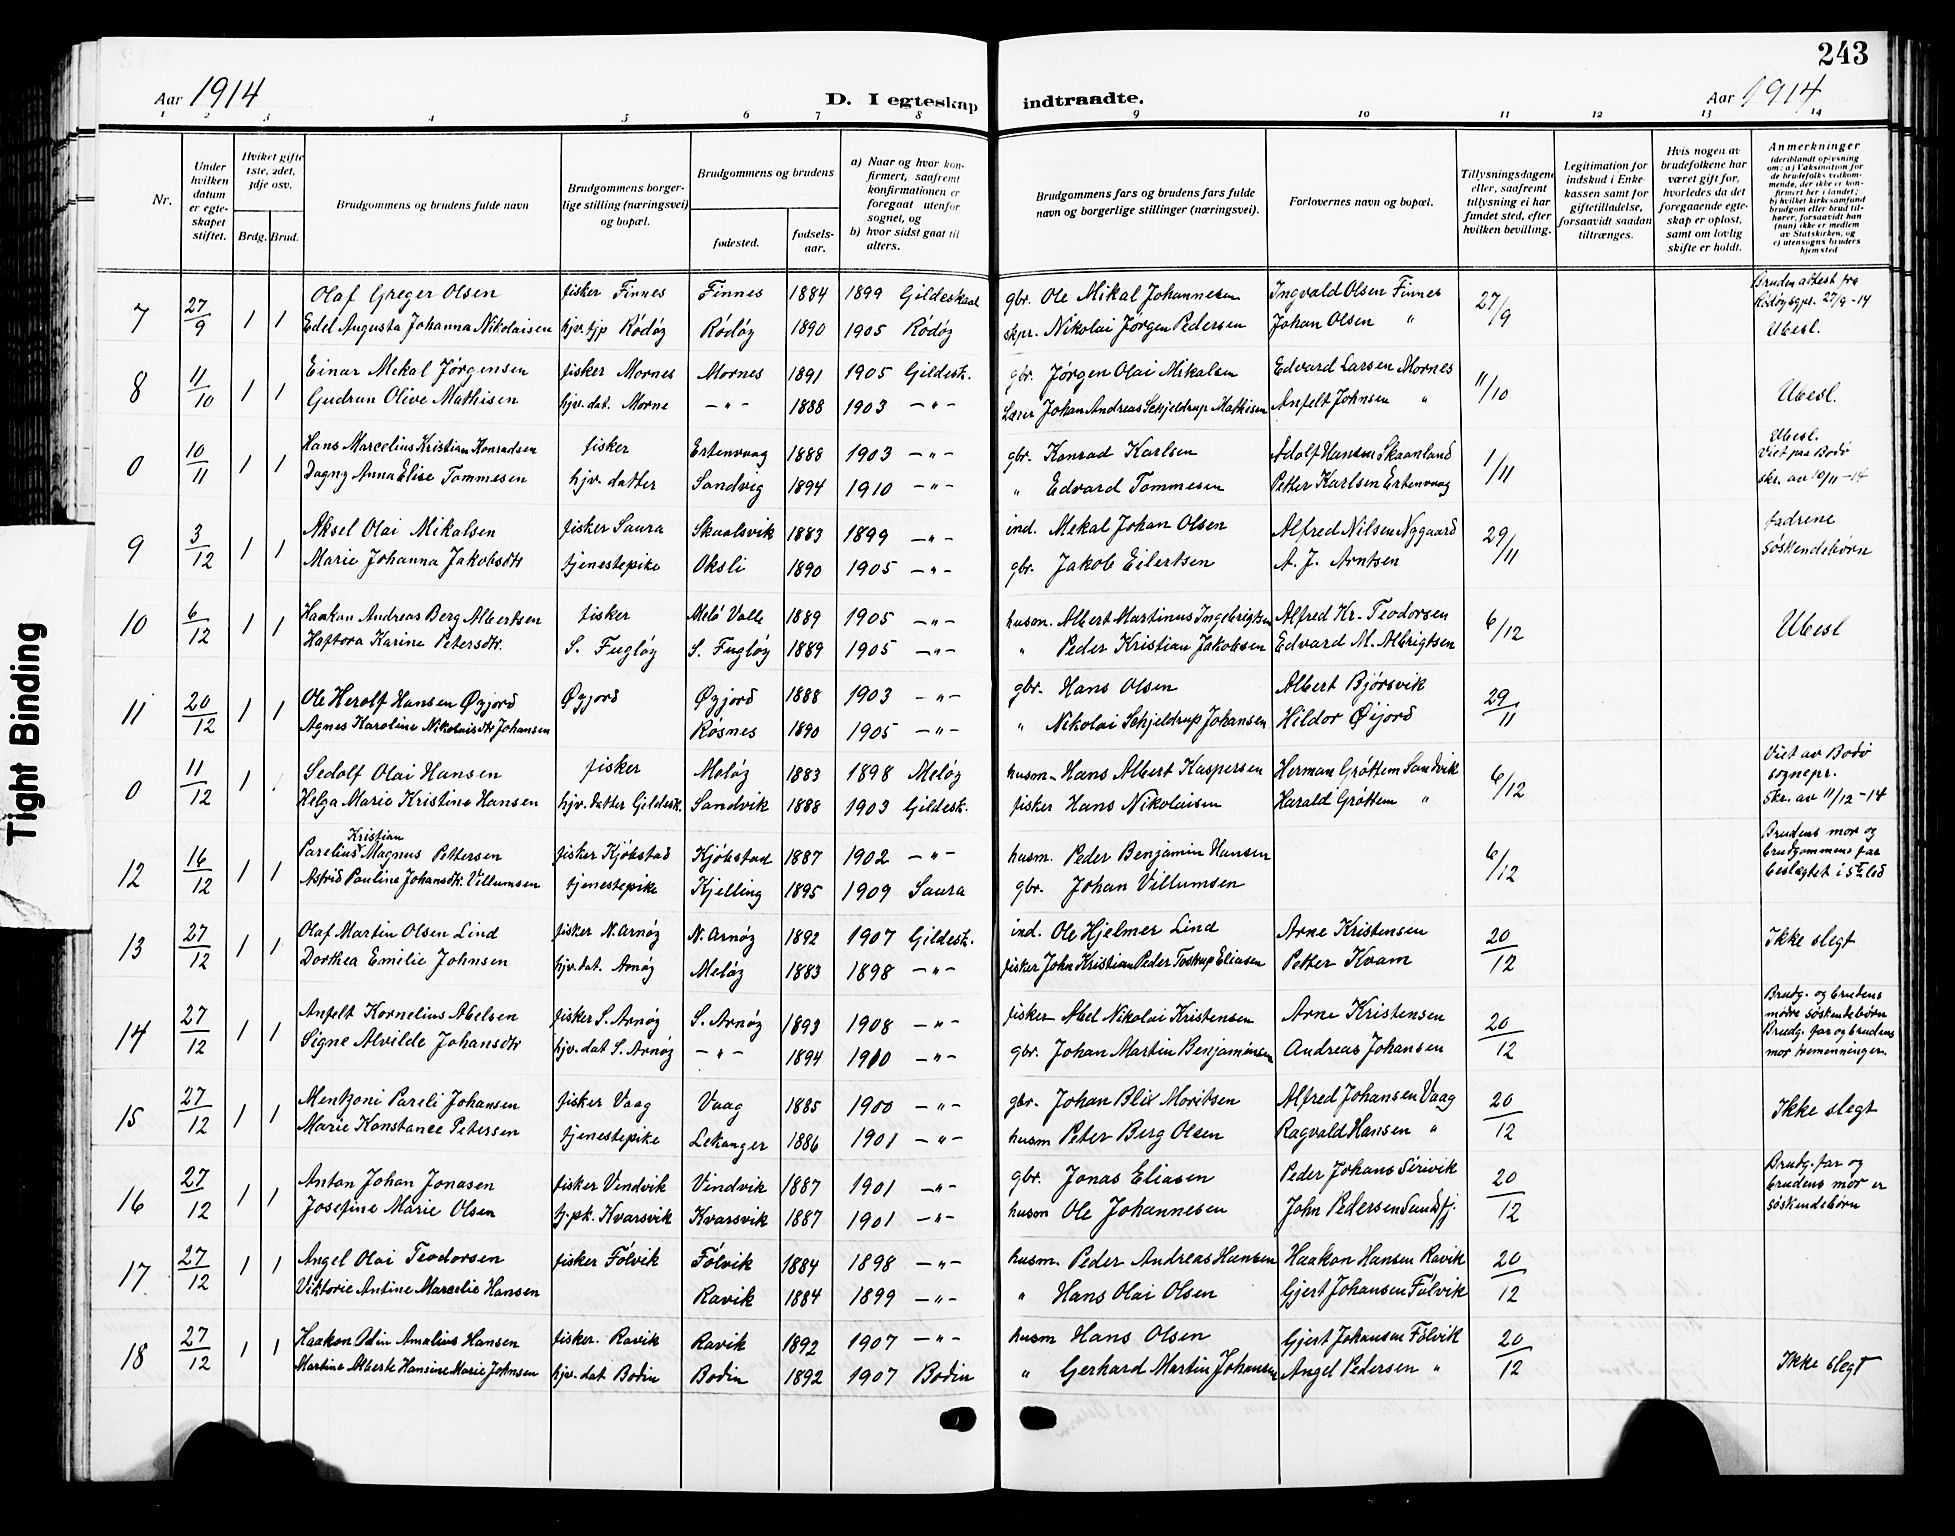 243
Aar 1914
D. I egteskap indtraadte.
Aar 1914
1 2 3 4 5 6 7 8 9 10 11 12 13 14
Nr.
Under hvilken datum er egteskapet stiftet.
Hvilket gifte 1ste, 2det, 3dje osv.
Brdg. Brud.
Brudgommens og brudens fulde navn
Brudgommens borgerlige stilling (næringsvei) og bopæl.
Brudgommens og brudens
fødested.
fødselsaar.
a) Naar og hvor konfirmert, saafremt konfirmationen er foregaat utenfor sognet, og
b) hvor sidst gaat til alters.
Brudgommens fars og brudens fars fulde navn og borgerlige stillinger (næringsvei).
Forlovernes navn og bopæl.
Tillysningsdagene eller, saafremt tillysning ei har fundet sted, efter hvilken bevilling.
Legitimation for indskud i Enkekassen samt for giftetilladelse, forsaavidt saadan tiltrænges.
Hvis nogen av brudefolkene har været gift før, hvorledes da det foregaaende egteskap er opløst, samt om lovlig skifte er holdt.
Anmerkninger (deriblandt oplysning om: a) Vaksination for de brudefolks vedkommende, der ikke er konfirmert her i landet; b) hvilket kirkesamfund brudgom eller brud tilhører, forsaavidt han (hun) ikke er medlem av Statskirken, og c) utensogns bruders hjemsted
7 27/9 1 1 Olaf Greger Olsen fisker Finnes Finnes 1884 1899 Gildeskaal gbr. Ole Mikal Johannesen Ingvald Olsen Finnes 27/9 Brudenattest fra Rødøysgpr. 27/9-14
Edel Augusta Johanna Nikolaisen hjv. tjp Rødøy Rødøy 1890 1905 Rødøy skpr. Nikolai Jørgen Pedersen Johan Olsen " Ubesl.
8 11/10 1 1 Einar Mekal Jørgensen fisker Mornes Mornes 1891 1905 Gildesk. gbr. Jørgen Olai Mikalsen Edvard Larsen Mornes 11/10 Ubesl.
Gudrun Olive Mathisen hjv. dat. Morne – " – 1888 1903 – " – Lærer Johan Andreas Schjeldrup Mathisen Anfelt Johnsen "
0 10/11 1 1 Hans Marcelius Kristian Konradsen fisker Ertenvaag 1888 1903 – " – gbr. Konrad Karlsen Adolf Hansen Skaanland 1/11 Ubesl. Viet paa Bodø
Dagny Anna Elise Tommesen hjv. datter Sandvig 1894 1910 – " – " Edvard Tommesen Petter Karlsen Ertenvaag skr. av 10/11-14
9 3/12 1 1 Aksel Olai Mikalsen fisker Saura Skaalsvik 1883 1899 – " – ind. Mekal Johan Olsen Alfred Nilsen Nygaard 29/11 fædrene
Marie Johanna Jakobsdtr tjenestepike Oksli 1890 1905 – " – gbr. Jakob Eilertsen A. J. Arntsen søskendebørn
10 6/12 1 1 Haakon Andreas Berg Albertsen fisker Melø Valle 1889 1905 – " – husm. Albert Martinus Ingebrigtsen Alfred Kr. Teodorsen 6/12 Ubesl
Haftora Karine Petersdtr. S. Fugløy S. Fugløy 1889 1905 – " – " Peder Kristian Jakobsen Edvard M. Albrigtsen
11 20/12 1 1 Ole Herolf Hansen Øyjord Øyjord Øyjord 1888 1903 – " – gbr. Hans Olsen Albert Bjørsvik 29/11
Agnes Karoline Nikolaisdtr Johansen Rosnes 1890 1905 – " – " Nikolai Schjeldrup Johansen Hildor Øijord
0 11/12 1 Sedolf Olai Hansen fisker Meløy 1883 1898 Meløy husm. Hans Albert Kaspersen Herman Grøttem Sandvik 6/12 Viet av Bodø sognepr.
Helga Marie Kristine Hansen hjv. datter Gildesk. Sandvik 1888 1903 Gildesk. fisker Hans Nikolaisen Harald Grøttem " skr. av 11/12-14
12 16/12 1 1 Parelius Kristian Magnus Pettersen fisker Kjøbstad Kjøbstad 1887 1902 – " – husm. Peder Benjamin Hansen 6/12 Brudens mor og brudgommens far
Astrid Pauline Johansdtr. Villumsen tjenestepike Kjelling 1895 1909 Saura gbr. Johan Villumsen beslægtet i 5te led
13 27/12 1 1 Olaf Martin Olsen Lind fisker N. Arnøy N. Arnøy 1892 1907 Gildesk. ind. Ole Hjelmer Lind Arne Kristensen 20/12 Ikke slegt
Dorthea Emilie Johnsen hjv. dat. Arnøy Meløy 1883 1898 – " – fisker John Kristian Peder Tostrup Eliasen Petter Kvam
14 27/12 1 1 Anfelt Kornelius Abelsen fisker S. Arnøy S. Arnøy 1893 1908 – " – fisker Abel Nikolai Kristensen Arne Kristensen 20/12 Brudg. og brudens mødre søskendebørn
Signe Alvilde Johansdtr hjv. dat S. Arnøy – " – 1894 1910 – " – gbr. Johan Martin Benjaminsen Andreas Johansen Brudg. far og brudens mor tremenninger.
15 27/12 1 1 Mentzoni Pareli Johansen fisker Vaag Vaag 1885 1900 – " – gbr. Johan Blix Moritsen Alfred Johansen Vaag 20/12 Ikke slegt
Marie Konstance Petersen tjenestepike Lekanger 1886 1901 – " – husm Peter Berg Olsen Ragvald Hansen "
16 27/12 1 1 Anton Johan Jonasen fisker Vindvik Vindvik 1887 1901 – " – gbr. Jonas Eliasen Peder Johans Sørivik 20/12 Brudg. far og brudens mor er
Josefine Marie Olsen tj. pk. Kvarsvik Kvarsvik 1887 1901 – " – husm Ole Johannesen John Pedersen Sundsfj. søskendebørn
17 27/12 1 1 Angel Olai Teodorsen fisker Følvik Følvik 1884 1898 – " – husm. Peder Andreas Hansen Haakon Hansen Ravik 20/12
Viktorie Antine Marcelie Hansen Ravik 1884 1899 – " – " Hans Olai Olsen Gjert Johansen Følvik
18 27/12 1 1 Haakon Odin Amalius Hansen fisker. Ravik Ravik 1892 1907 – " – husm Hans Olsen Gjert Johansen Følvik 20/12 Ikke slegt
Martine Alberte Hansine Marie Johnsen hjv. dat Bodin Bodin 1892 1907 Bodin " Gerhard Martin Johansen Angel Pedersen "
Tight Binding